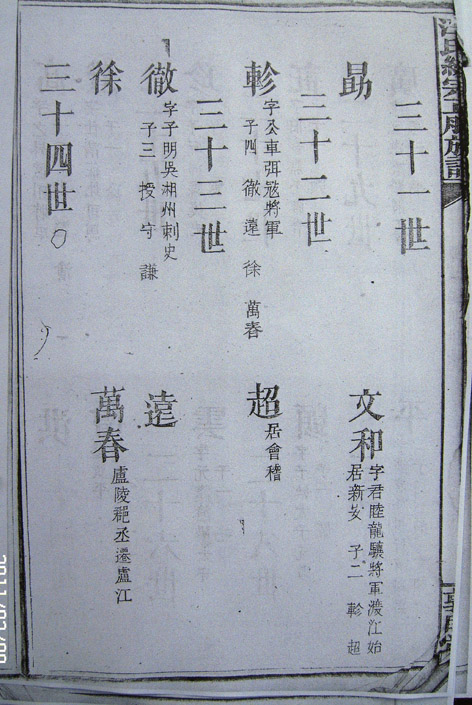 三十一世
勗
文和
字君睦龍驤將軍渡江始
居新安 子二 軫 超
三十二世
軫
字公車弭冦將軍
子四 徹 遠 徐 萬春
超
居會稽
三十三世
徹
字子明吳湘州刺史
子三 授 守 謙
遠
徐
萬春
廬陵郡丞遷廬江
三十四世